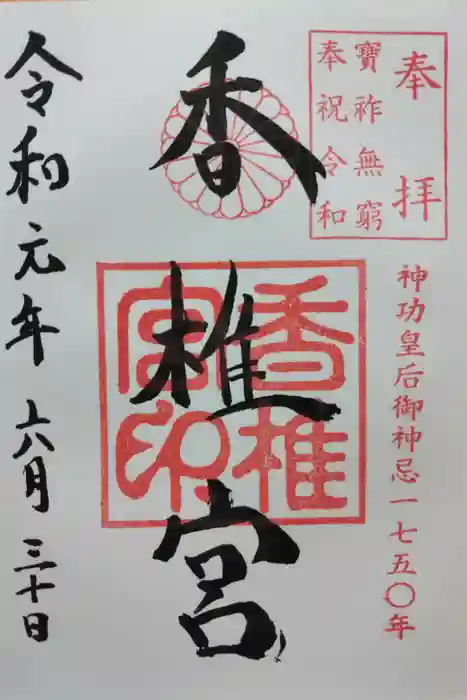 奉拝
寶祚無窮
奉祝令和
神功皇后御神忌一七五〇年
香椎宮
香椎
宮印
令和元年 六月 三十日